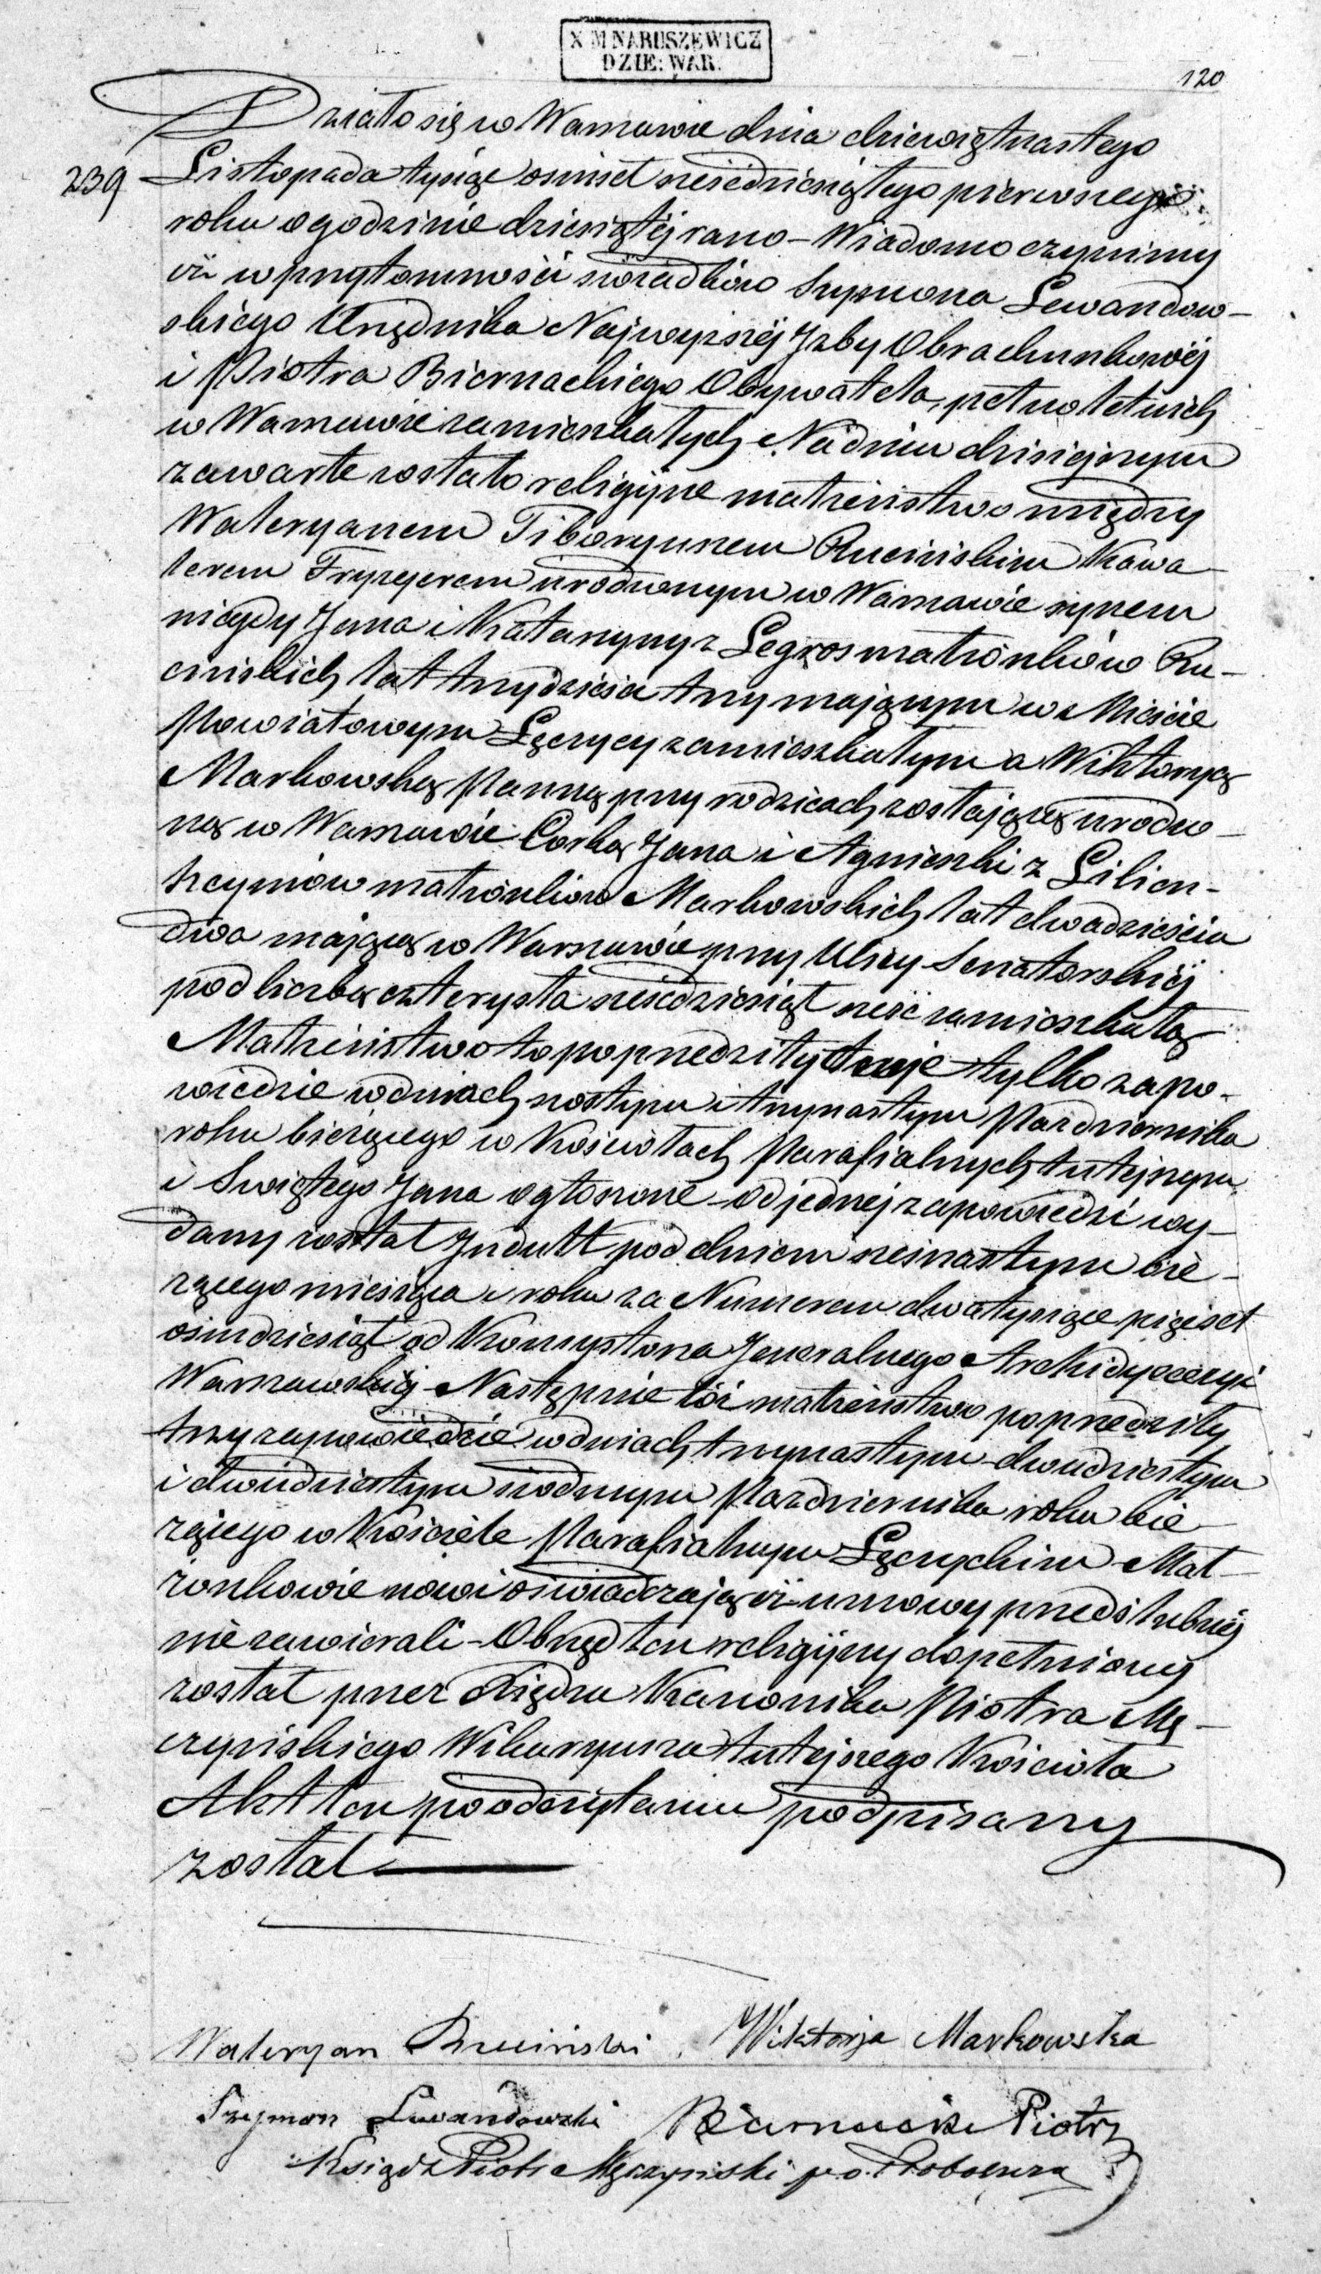 X M NARUSZEWICZ
DZIE: WAR.
120
Działo się w Warszawie dnia dziewiętnastego
239 Listopada tysiąc osmset sześćdziesiątego pierwszego
roku o godzinie dziesiątéj rano – Wiadomo czynimy
iż w przytomności świadków Szymona Lewandow–
skiego Urzędnika Najwyższéj Izby Obrachunkowéj
i Piotra Biernackiego Obywatela, pełnoletnich
w Warszawie zamieszkałych. Na dniu dzisiejszym
zawarte zostało religijne małżeństwo między
Waleryanem Tiboryuszem Rucińskim Kawa–
lerem Fryzyerem urodzonym w Warszawie synem
niegdy Jana i Katarzyny z Legros małżonków Ru–
cińskich lat trzydzieści trzy mającym w Mieście
Powiatowym Łęczycy zamieszkałym a Wiktoryą
Markowską Panną przy rodzicach zostającą urodzo–
ną w Warszawie Corką Jana i Agnieszki z Lilien–
małżonków Markowskich lat dwadzieścia
dwa mającą w Warszawie przy Ulicy Senatorskiéj
pod liczbą czterysta sześćdziesiąt sześć zamieszkałą
Małżeństwo to poprzedziły dwie tylko zapo–
wiedzie w dniach szóstym i trzynastym Pazdziernika
roku bieżącego w Kościołach Parafialnych tutejszym
i Swiętego Jana ogłoszone – od jednej zapowiedzi wy–
dany został Indult pod dniem szesnastym bie–
rzącego miesiąca i roku za Numerem dwa tysiące pięćset
ośmdziesiąt od Konsystorza Jeneralnego Archidyecezyi
Warszawskiéj – Następnie toż małżeństwo poprzedziły
trzy zapowiedzie w dniach trzynastym dwudziestym
i dwudziestym siódmym Pazdziernika roku bie–
rzącego w Kościele Parafialnym Łęczyckim – Mał–
żonkowie nowi oświadczają iż umowy przedślubnéj
nie zawierali – Obrzęd ten religijny dopełniony
został przez Xiędza Kanonika Piotra Mę–
czyńskiego Wikaryusza tutejszego Kościoła
Akt ten po odczytaniu podpisany
został
Waleryan Ruciński. Wiktorja Markowska
Szymon Lewandowski Biernacki Piotr
Ksiądz Piotr Męczyński p. o. Proboszcza